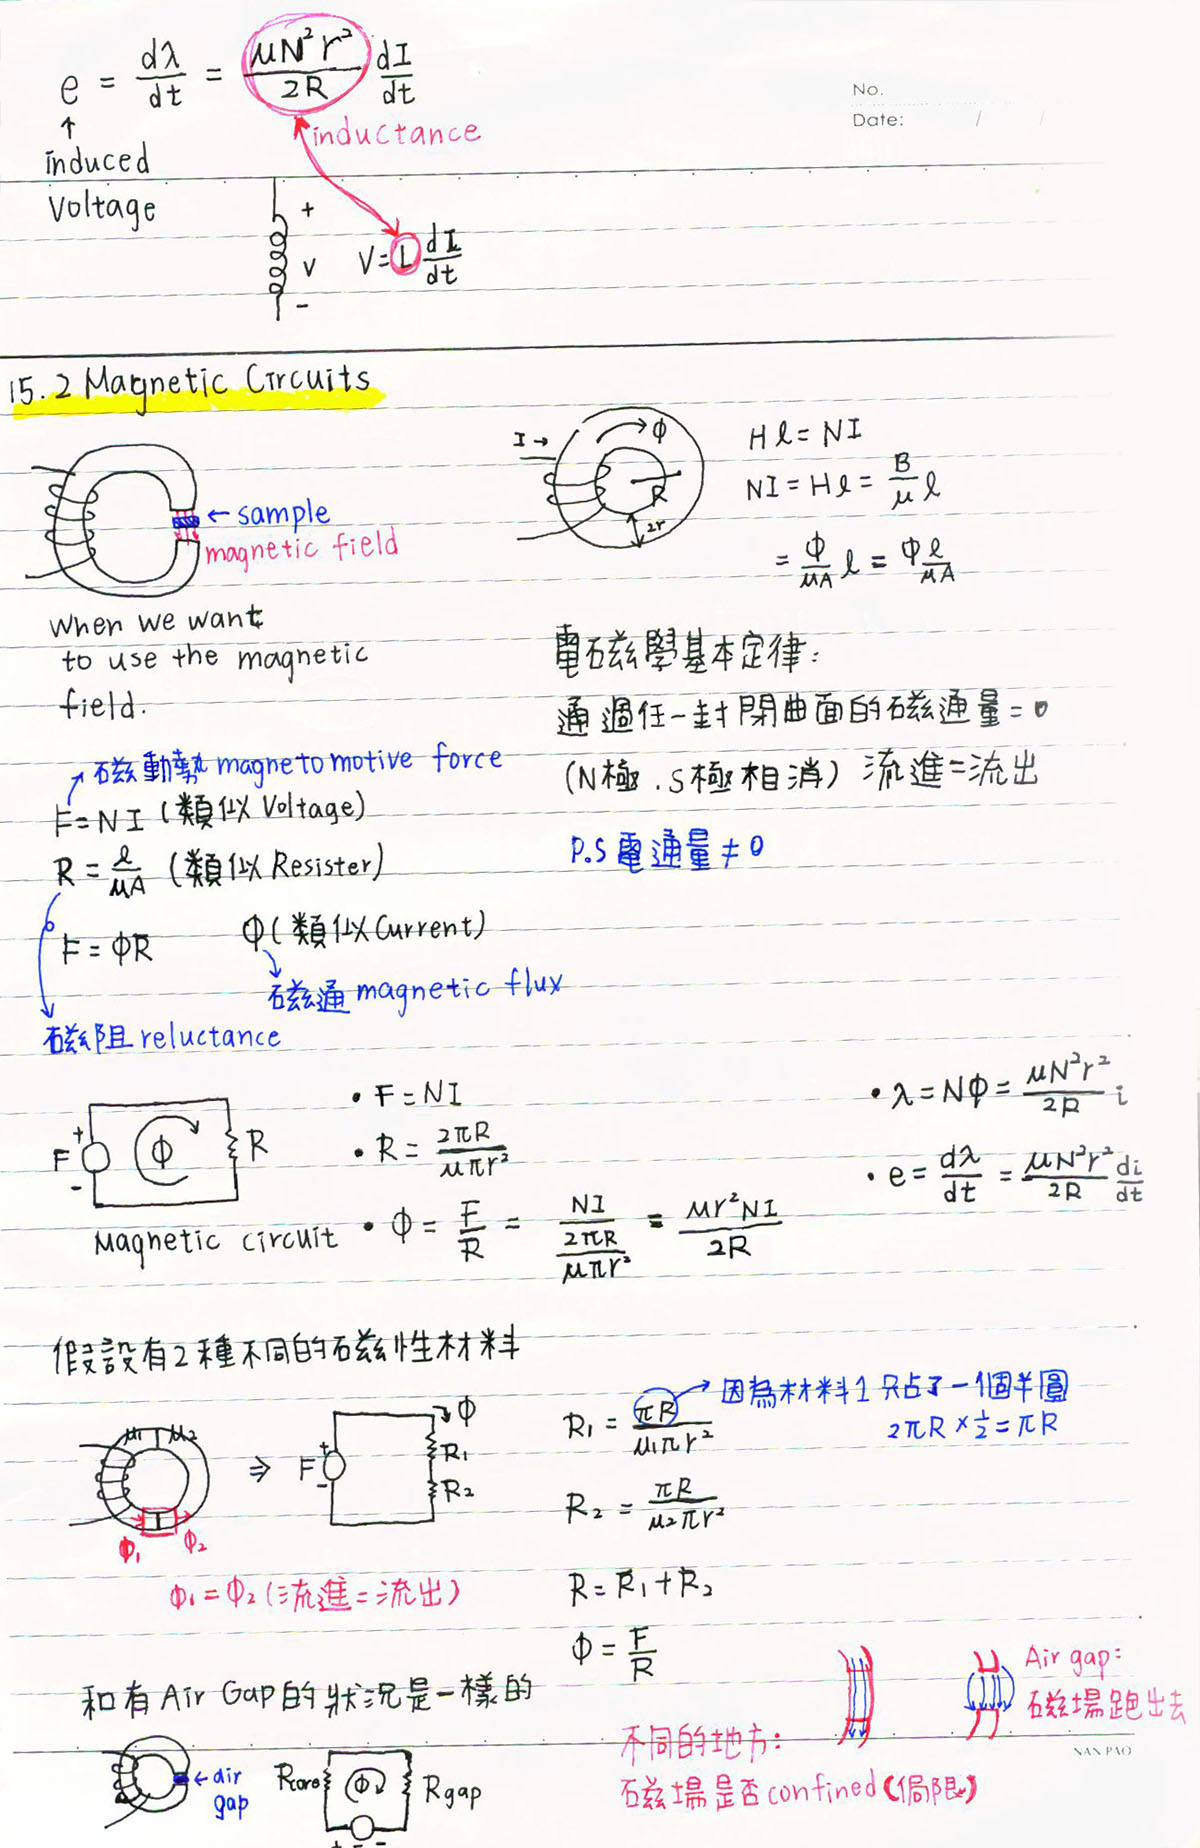 e = dλ/dt = μN²r²/2R dI/dt
No.
Date: / /
↑ inductance
induced
Voltage
+
V V=L dI/dt
-
15.2 Magnetic Circuits
I→ Φ
R
2r
Hl=NI
NI=Hl=B/μ l
=Φ/μA l=Φ l/μA
←sample
magnetic field
When we want
to use the magnetic
field.
電磁學基本定律:
通過任一封閉曲面的磁通量=0
(N極.S極相消) 流進=流出
P.S電通量≠0
磁動勢magnetomotive force
F=NI(類似Voltage)
R=l/μA (類似Resister)
F=ΦR Φ(類似Current)
磁通magnetic flux
磁阻reluctance
+
F Φ R
-
Magnetic circuit
•F=NI
•R=2πR/μπr²
•Φ=F/R=NI/(2πR/μπr²)=μr²NI/2R
•λ=NΦ=μN²r²/2R i
•e=dλ/dt=μN²r²/2R di/dt
假設有2種不同的磁性材料
μ₁ μ₂
Φ₁ Φ₂
⇒ F + - Φ
R₁
R₂
Φ₁=Φ₂(流進=流出)
R₁=πR/μ₁πr² → 因為材料1只占了一個半圓
2πR×½=πR
R₂=πR/μ₂πr²
R=R₁+R₂
Φ=F/R
和有Air Gap的狀況是一樣的
←air
gap
Rcore Φ Rgap
+ -
Air gap:
磁場跑出去
不同的地方:
磁場是否confined(侷限)
NAN PAO